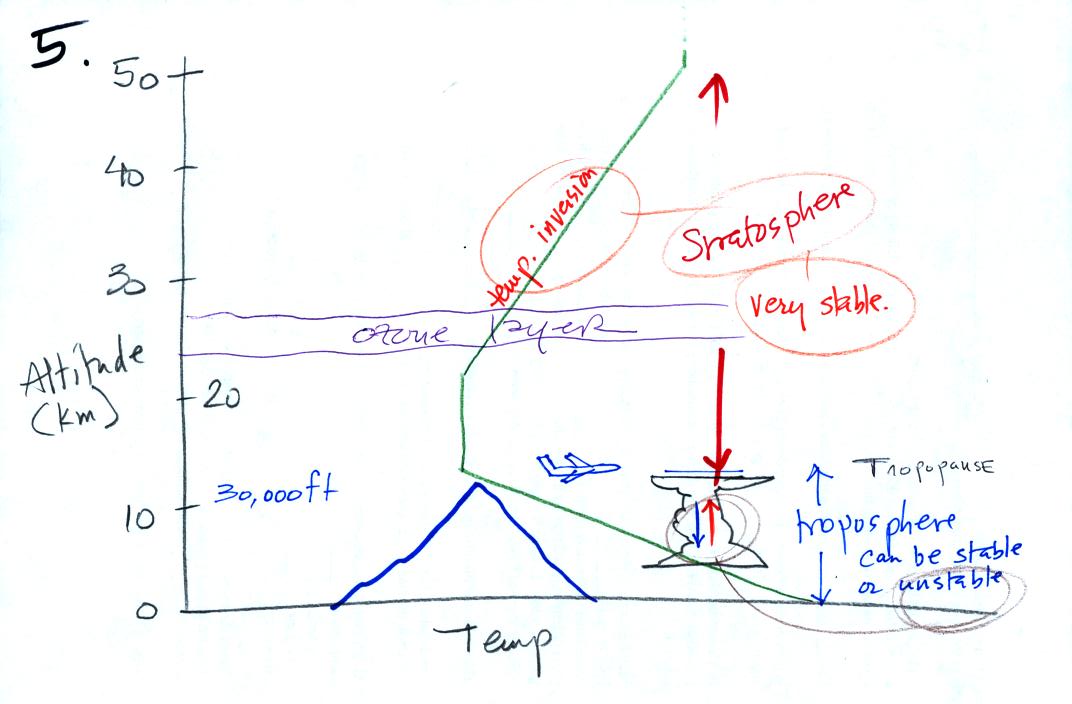 5.
50
40
temp. inversion
Stratosphere
30
very stable.
ozone layer
Altitude
(km)
20
30,000ft
Tropopause
10
troposphere
can be stable
or unstable
0
Temp